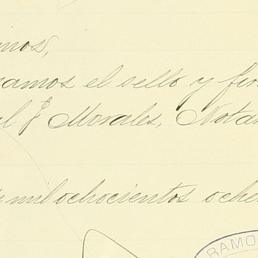 amos el sello y fir
el J Morales, Nota
mil ochocientos oche
RAMO